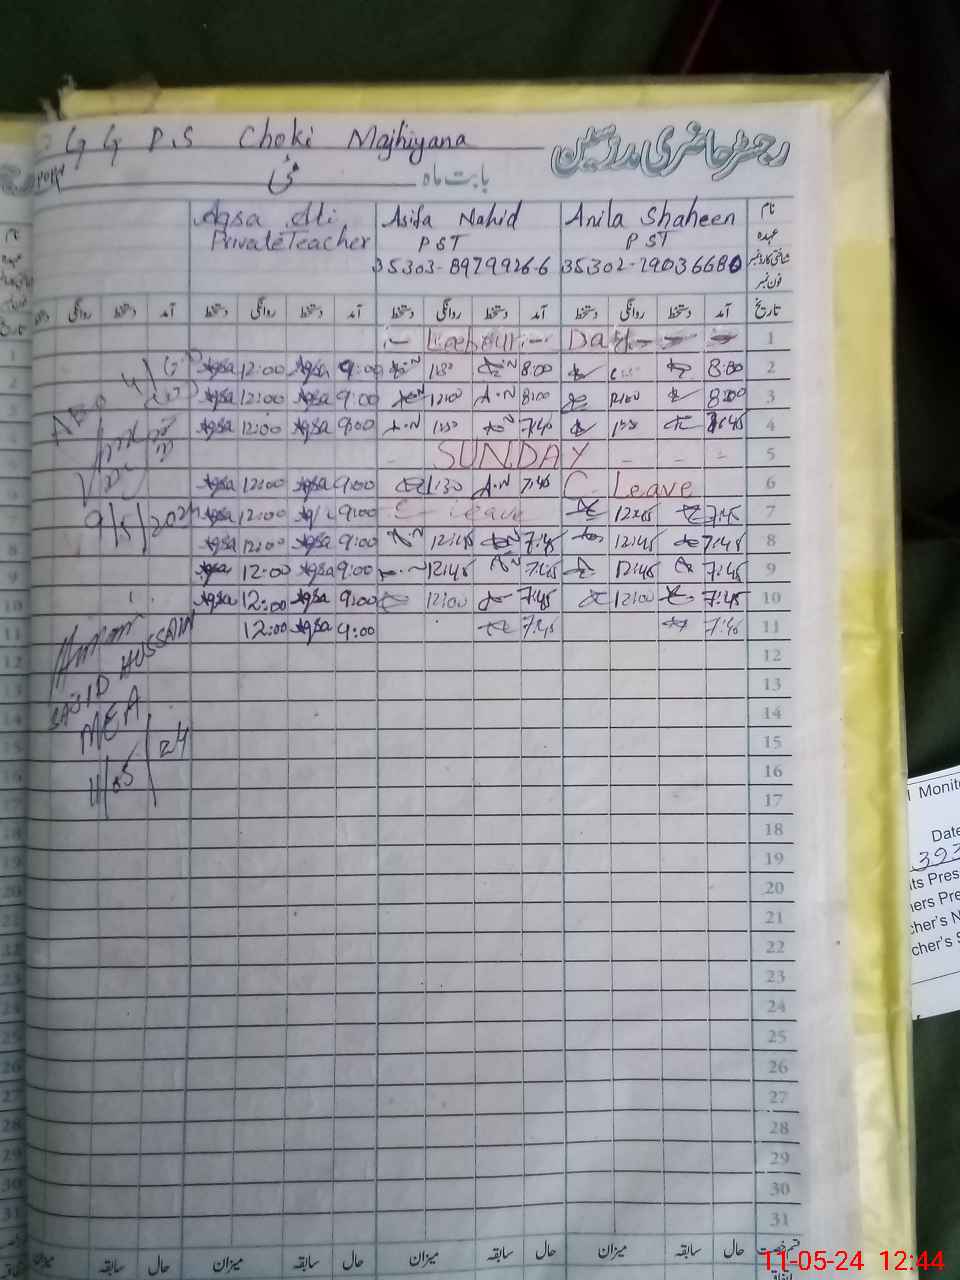 G G P.S Choki Majhiyana رجسٹر حاضری مدرسین
بابت ماہ مئی
Aqsa Ali Asifa Nahid Anila Shaheen نام
Private Teacher PST PST عہدہ
35303-8979926-6 35302-7903668 شناختی کارڈ نمبر
فون نمبر
دستخط روانگی دستخط آمد دستخط روانگی دستخط آمد دستخط روانگی دستخط آمد تاریخ
Labour Day 1
Aqsa 12:00 Aqsa 9:00 A.N 8:00 8:00 2
Aqsa 12:00 Aqsa 9:00 12:00 A.N 8:00 12:00 8:00 3
Aqsa 12:00 Aqsa 9:00 A.N 7:45 7:45 4
SUNDAY 5
Aqsa 12:00 Aqsa 9:00 1:30 A.N 7:45 C- Leave 6
Aqsa 12:00 9:00 C- leave 12:45 7:45 7
Aqsa 12:00 Aqsa 9:00 A.N 12:45 7:45 12:45 7:45 8
Aqsa 12:00 Aqsa 9:00 12:45 A.N 7:45 12:45 7:45 9
Aqsa 12:00 Aqsa 9:00 12:00 7:45 12:00 7:45 10
12:00 Aqsa 9:00 7:45 7:45 11
9/5/2024
SAJID HUSSAIN
MEA
11/05/24
12
13
14
15
16
17
18
19
20
21
22
23
24
25
26
27
28
29
30
31
میزان سابقہ حال میزان سابقہ حال میزان سابقہ حال قسم رخصت
Monito
Date
393
ts Pres
ers Pre
cher's N
cher's S
11-05-24 12:44